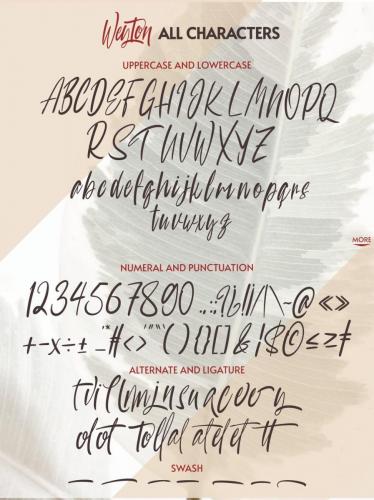 Weyton ALL CHARACTERS
UPPERCASE AND LOWERCASE
ABCDEFGHIJKLMNOPQ
RSTUVWXYZ
abcdefghijklmnopqrs
tuvwxyz
MORE
NUMERAL AND PUNCTUATION
1234567890 .,:;?¿¡|/\~@«»
+-x÷±_"*#<>'"""(){}[]&!$©≤≥≠
ALTERNATE AND LIGATURE
SWASH